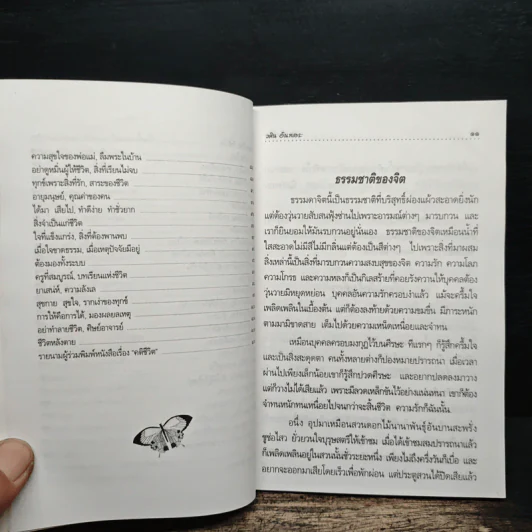 ความสุขใจของพ่อแม่, ลืมพระในบ้าน
อย่าดูหมิ่นผู้ให้ชีวิต, สิ่งที่เรียนไม่จบ
ทุกข์เพราะสิ่งที่รัก, สาระของชีวิต
อายุมนุษย์, คุณค่าของคน
ได้มา เสียไป, ทำดีง่าย ทำชั่วยาก
สิ่งจำเป็นแก่ชีวิต
ใจที่แข็งแกร่ง, สิ่งที่ต้องพานพบ
เมื่อใจขาดธรรม, เมื่อเหตุปัจจัยมีอยู่
ต้องมองทั้งระบบ
ครูที่สมบูรณ์, บทเรียนแห่งชีวิต
ยาเสน่ห์, ความลังเล
สุขกาย สุขใจ, รากเง่าของทุกข์
การให้คือการได้, มองผลยลเหตุ
อย่าทำลายชีวิต, ศิษย์อาจารย์
ชีวิตหลังตาย
รายนามผู้ร่วมพิมพ์หนังสือเรื่อง "คติชีวิต"
วศิน อินทสระ ๑๑
ธรรมชาติของจิต
ธรรมดาจิตนี้เป็นธรรมชาติที่บริสุทธิ์ผ่องแผ้วสะอาดยิ่งนัก
แต่ต้องวุ่นวายสับสนฟุ้งซ่านไปเพราะอารมณ์ต่างๆ มารบกวน และ
เราก็ยินยอมให้มันรบกวนอยู่นั่นเอง ธรรมชาติของจิตเหมือนน้ำที่
ใสสะอาดไม่มีสีไม่มีกลิ่นแต่ต้องเป็นสีต่างๆ ไปเพราะสิ่งที่มาผสม
สิ่งเหล่านี้เป็นสิ่งที่มารบกวนความสงบสุขของจิต ความรัก ความโลภ
ความโกรธ และความหลงก็เป็นกิเลสร้ายที่คอยรังควานให้บุคคลต้อง
วุ่นวายมิหยุดหย่อน บุคคลอันความรักครอบงำแล้ว แม้จะครึ้มใจ
เพลิดเพลินในเบื้องต้น แต่ก็ต้องลงท้ายด้วยความขมขื่น มีภาระหนัก
ตามมามิขาดสาย เต็มไปด้วยความเหน็ดเหนื่อยและจำทน
เหมือนบุคคลรอบมงกุฎไว้บนศีรษะ ทีแรกๆ ก็รู้สึกครึ้มใจ
และเป็นสิ่งสะดุดตา คนทั้งหลายต่างก็ปองหมายปรารถนา เมื่อเวลา
ผ่านไปเพียงเล็กน้อยเขาก็รู้สึกปวดศีรษะ และอยากปลดลงมาวาง
แต่ก็วางไม่ได้เสียแล้ว เพราะมีลวดเหล็กขันไว้อย่างแน่นหนา เขาก็ต้อง
จำทนหนักทนเหนื่อยไปจนกว่าจะสิ้นชีวิต ความรักก็ฉันนั้น
อนึ่ง อุปมาเหมือนสวนดอกไม้นานาพันธุ์อันบานสะพรั่ง
ชูช่อไสว ยั่วยวนใจบุรุษสตรีให้เข้าชม เมื่อได้เข้าชมสมปรารถนาแล้ว
ก็เพลิดเพลินอยู่ในสวนนั้นชั่วระยะหนึ่ง เพียงไม่ถึงครึ่งวันก็เบื่อ และ
อยากจะออกมาเสียโดยเร็วเพื่อพักผ่อน แต่ประตูสวนได้ปิดเสียแล้ว